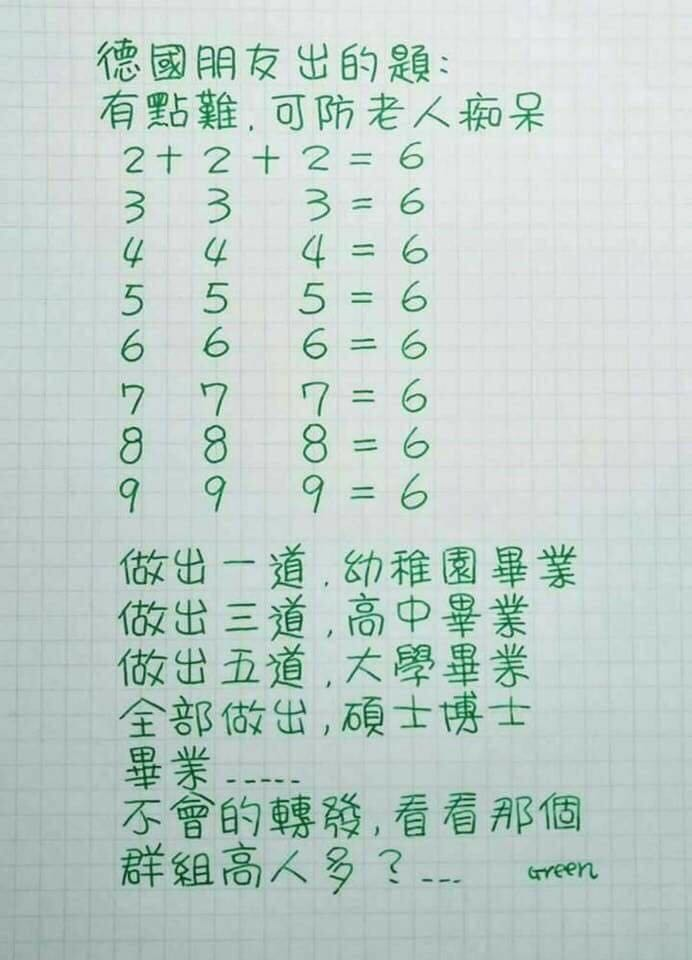 德國朋友出的題:
有點難,可防老人痴呆
2 + 2 + 2 = 6
3 3 3 = 6
4 4 4 = 6
5 5 5 = 6
6 6 6 = 6
7 7 7 = 6
8 8 8 = 6
9 9 9 = 6
做出一道,幼稚園畢業
做出三道,高中畢業
做出五道,大學畢業
全部做出,碩士博士
畢業-----
不會的轉發,看看那個
群組高人多?---
Green